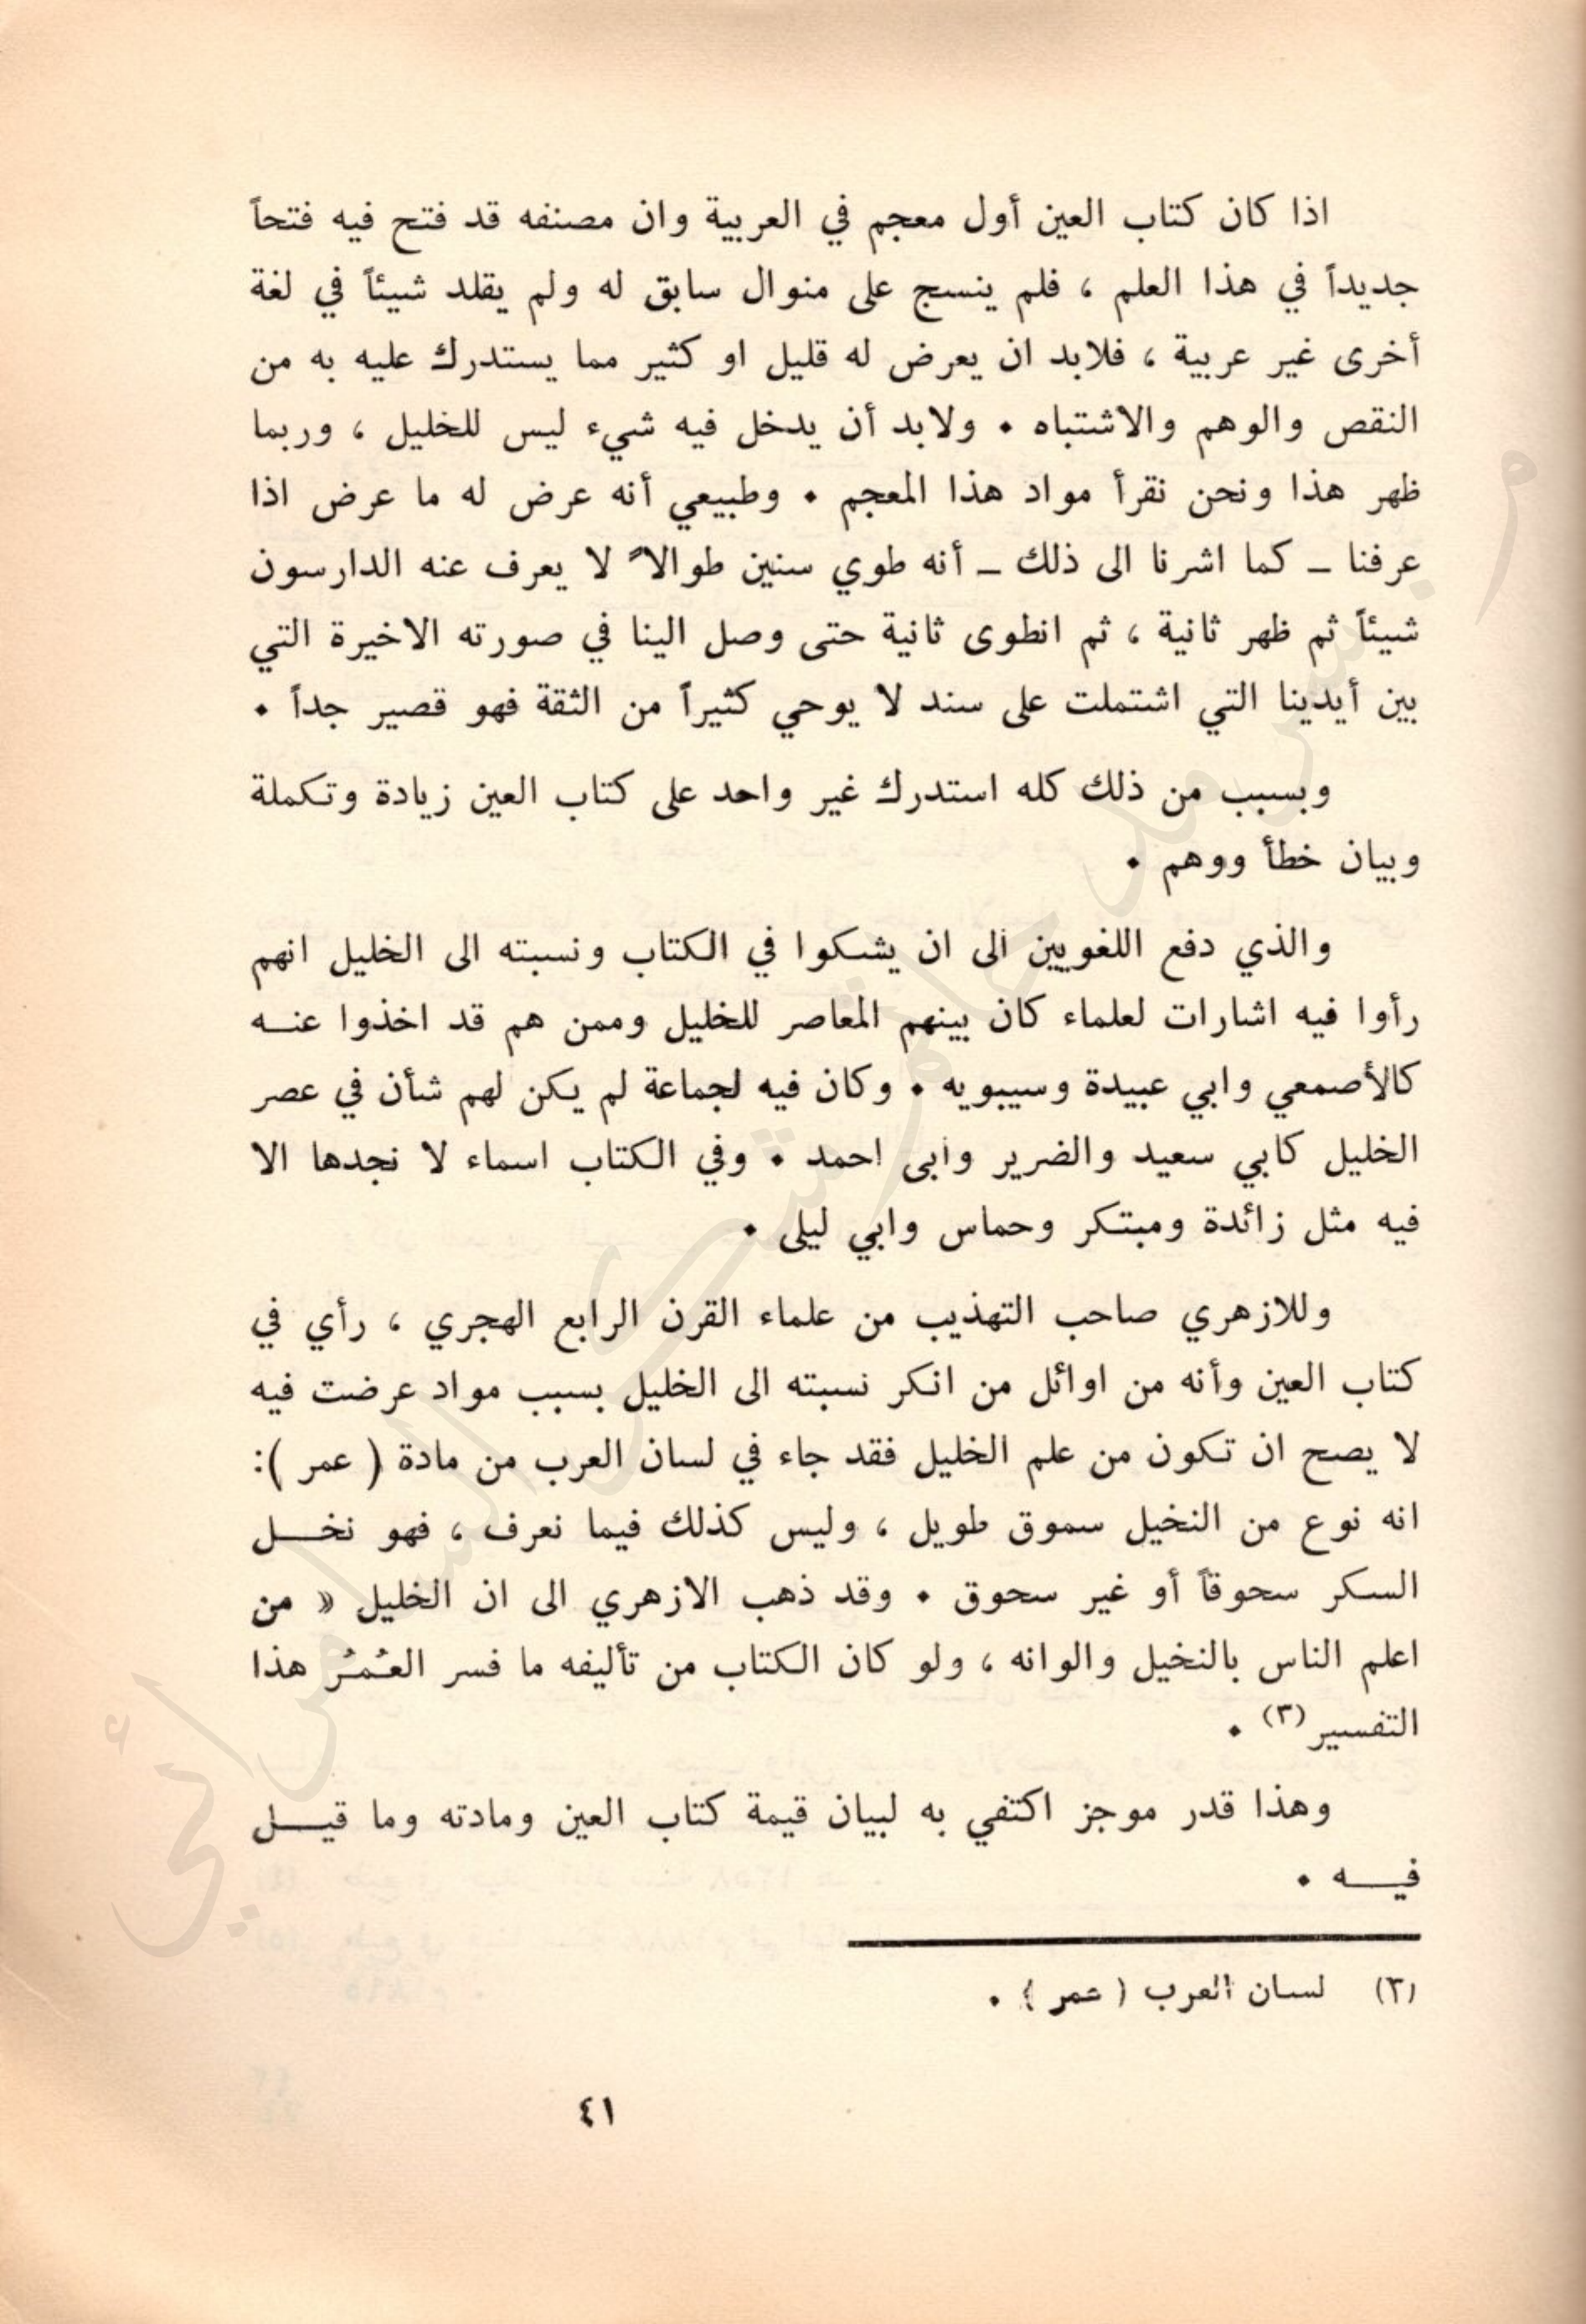 اذا كان كتاب العين أول معجم في العربية وان مصنفه قد فتح فيه فتحاً
جديداً في هذا العلم ، فلم ينسج على منوال سابق له ولم يقلد شيئاً في لغة
أخرى غير عربية ، فلابد ان يعرض له قليل او كثير مما يستدرك عليه به من
النقص والوهم والاشتباه ٠ ولابد أن يدخل فيه شيء ليس للخليل ، وربما
ظهر هذا ونحن نقرأ مواد هذا المعجم ٠ وطبيعي أنه عرض له ما عرض اذا
عرفنا ــ كما اشرنا الى ذلك ــ أنه طوي سنين طوالاً لا يعرف عنه الدارسون
شيئاً ثم ظهر ثانية ، ثم انطوى ثانية حتى وصل الينا في صورته الاخيرة التي
بين أيدينا التي اشتملت على سند لا يوحي كثيراً من الثقة فهو قصير جداً ٠
وبسبب من ذلك كله استدرك غير واحد على كتاب العين زيادة وتكملة
وبيان خطأ ووهم ٠
والذي دفع اللغويين الى ان يشكوا في الكتاب ونسبته الى الخليل انهم
رأوا فيه اشارات لعلماء كان بينهم المعاصر للخليل وممن هم قد اخذوا عنـه
كالأصمعي وابي عبيدة وسيبويه ٠ وكان فيه لجماعة لم يكن لهم شأن في عصر
الخليل كابي سعيد والضرير وابى احمد ٠ وفي الكتاب اسماء لا نجدها الا
فيه مثل زائدة ومبتكر وحماس وابي ليلى ٠
وللازهري صاحب التهذيب من علماء القرن الرابع الهجري ، رأي في
كتاب العين وأنه من اوائل من انكر نسبته الى الخليل بسبب مواد عرضت فيه
لا يصح ان تكون من علم الخليل فقد جاء في لسان العرب من مادة ( عمر ):
انه نوع من النخيل سموق طويل ، وليس كذلك فيما نعرف ، فهو نخـــل
السكر سحوقاً أو غير سحوق ٠ وقد ذهب الازهري الى ان الخليل « من
اعلم الناس بالنخيل والوانه ، ولو كان الكتاب من تأليفه ما فسر العُمرُ هذا
التفسير(٣) ٠
وهذا قدر موجز اكتفي به لبيان قيمة كتاب العين ومادته وما قيـــل
فيـــه ٠
(٣) لسان العرب ( عمر ) ٠
٤١